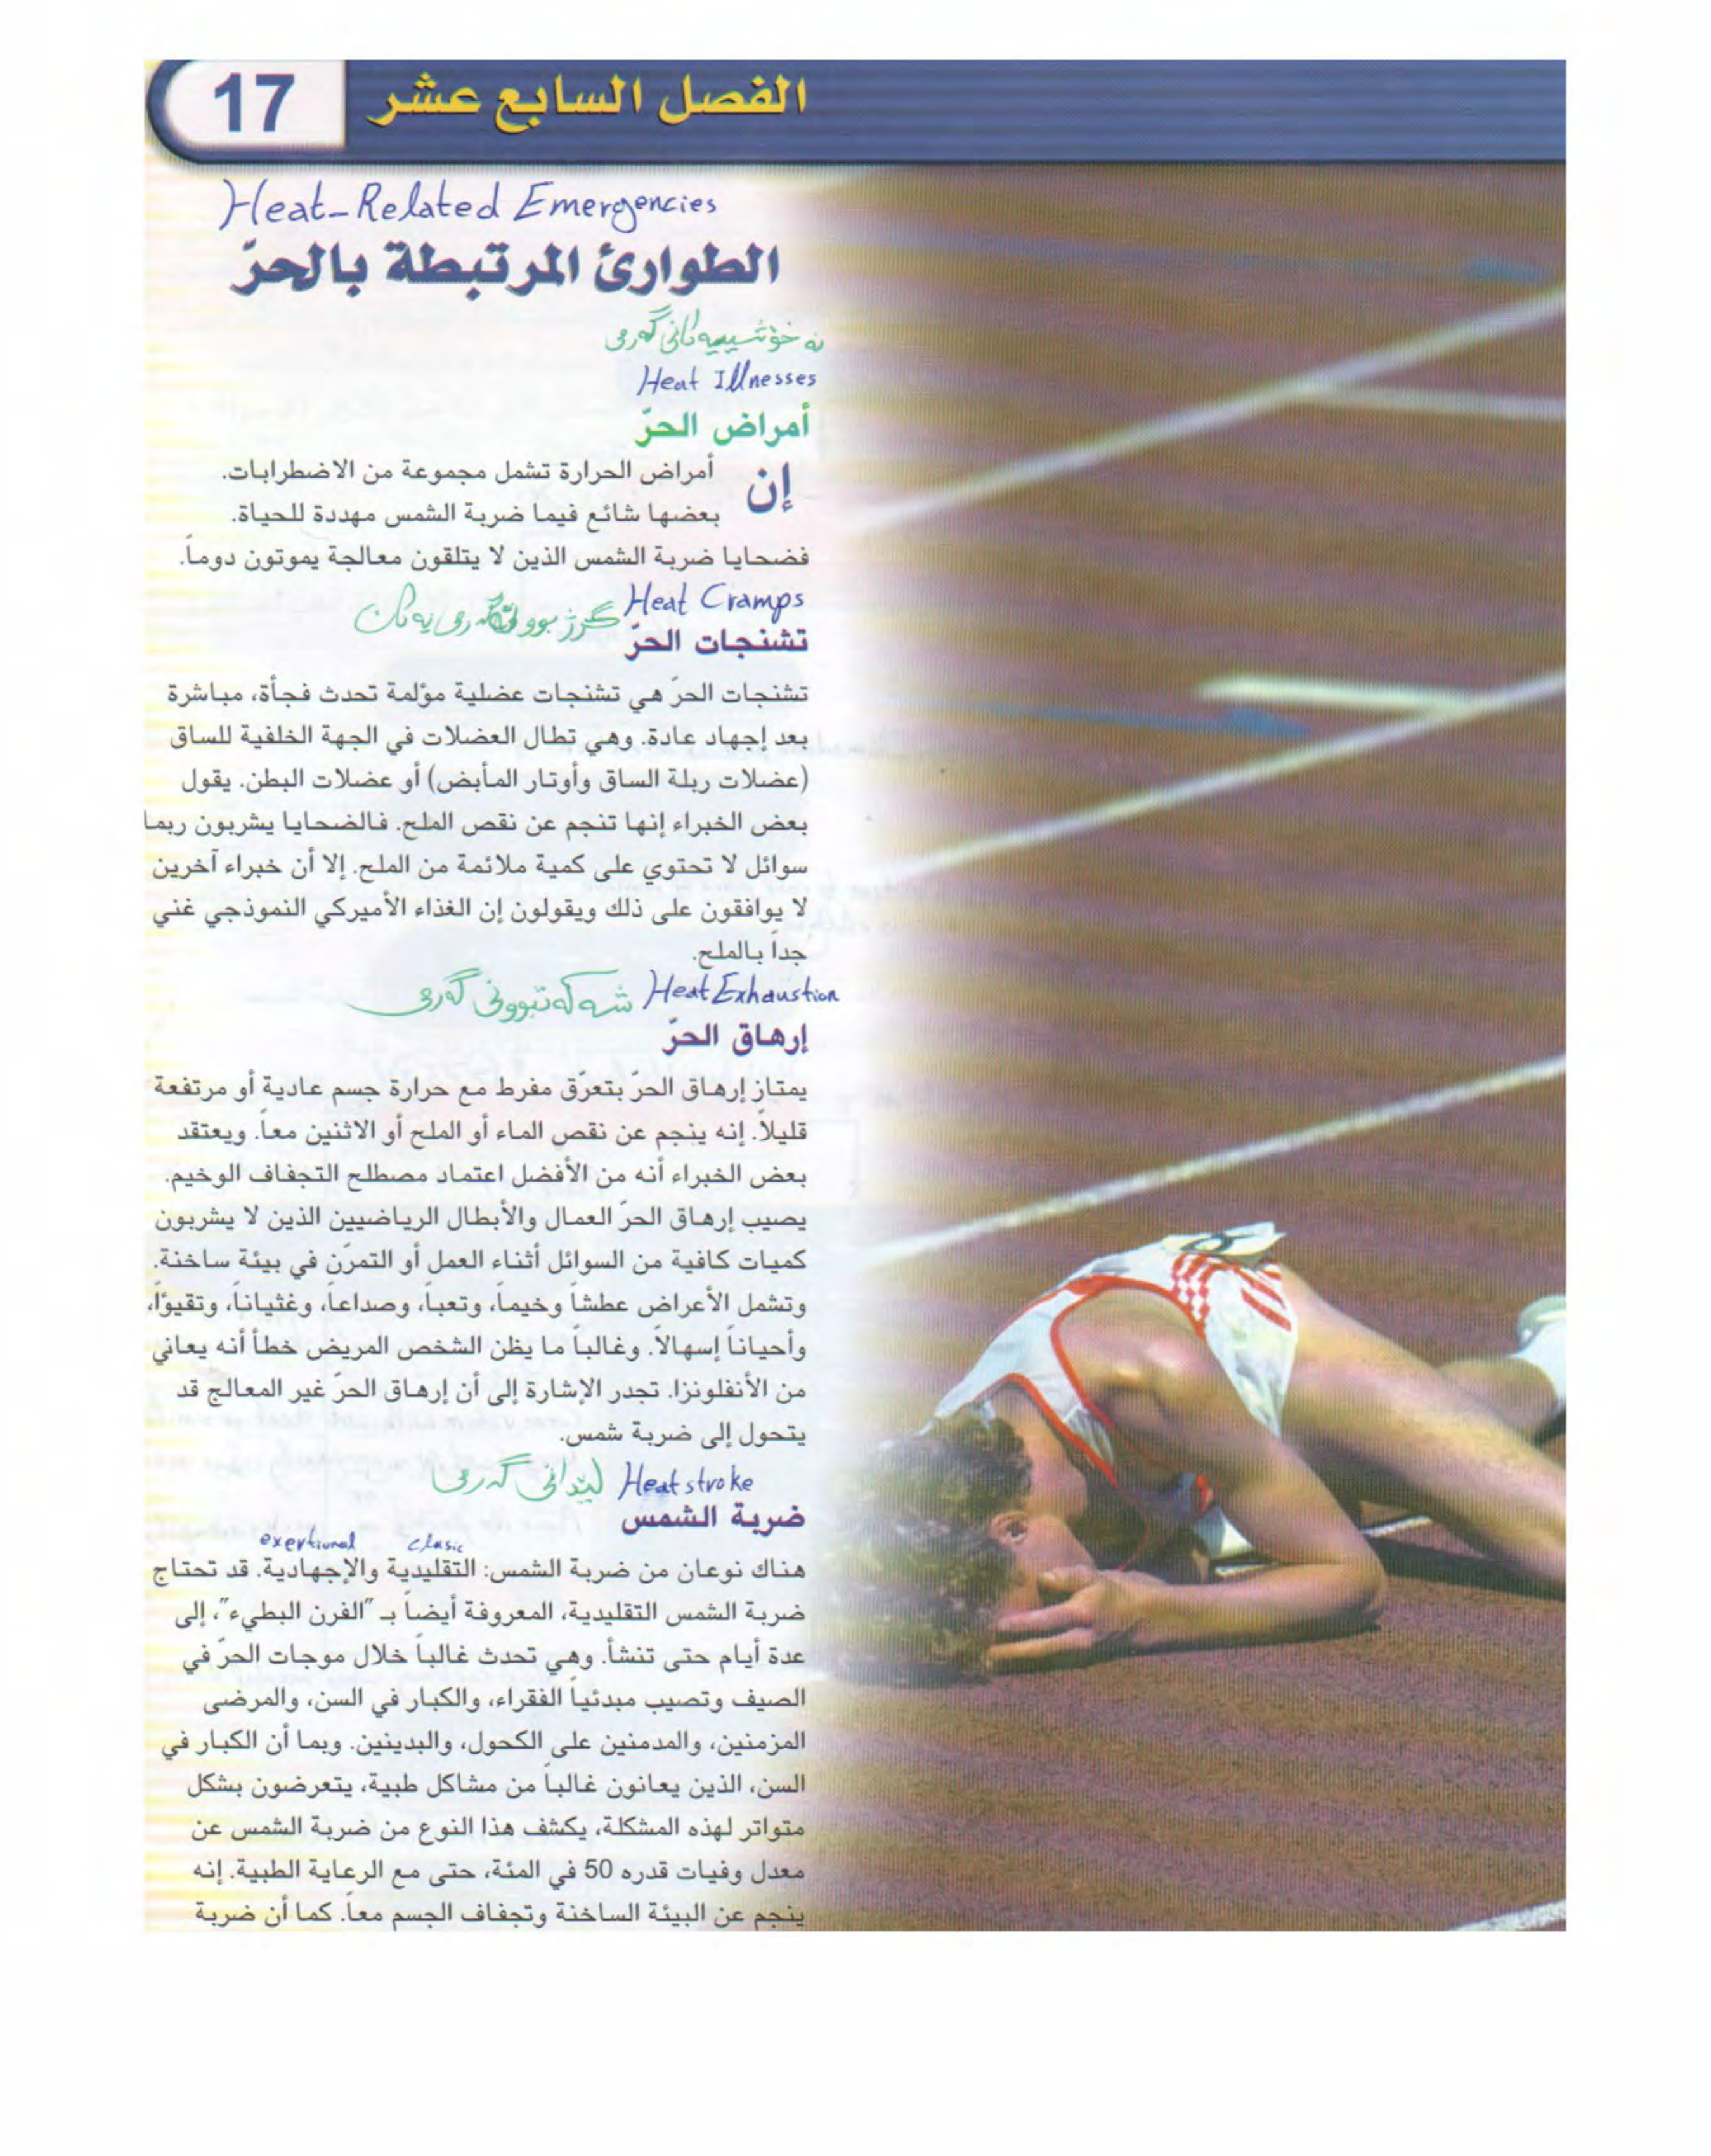 17 الفصل السابع عشر
Heat-Related Emergencies
الطوارئ المرتبطة بالحرّ
نه خۆشييه كانى گه رمى
Heat Illnesses
أمراض الحرّ
إن أمراض الحرارة تشمل مجموعة من الاضطرابات.
بعضها شائع فيما ضربة الشمس مهددة للحياة.
فضحايا ضربة الشمس الذين لا يتلقون معالجة يموتون دوماً.
Heat Cramps
تشنجات الحرّ
تشنجات الحرّ هي تشنجات عضلية مؤلمة تحدث فجأة، مباشرة
بعد إجهاد عادة. وهي تطال العضلات في الجهة الخلفية للساق
(عضلات ربلة الساق وأوتار المأبض) أو عضلات البطن. يقول
بعض الخبراء إنها تنجم عن نقص الملح. فالضحايا يشربون ربما
سوائل لا تحتوي على كمية ملائمة من الملح. إلا أن خبراء آخرين
لا يوافقون على ذلك ويقولون إن الغذاء الأميركي النموذجي غني
جداً بالملح.
Heat Exhaustion شه كه تبوونى گه رمى
إرهاق الحرّ
يمتاز إرهاق الحرّ بتعرّق مفرط مع حرارة جسم عادية أو مرتفعة
قليلاً. إنه ينجم عن نقص الماء أو الملح أو الاثنين معاً. ويعتقد
بعض الخبراء أنه من الأفضل اعتماد مصطلح التجفاف الوخيم.
يصيب إرهاق الحرّ العمال والأبطال الرياضيين الذين لا يشربون
كميات كافية من السوائل أثناء العمل أو التمرّن في بيئة ساخنة.
وتشمل الأعراض عطشاً وخيماً، وتعباً، وصداعاً، وغثياناً، وتقيؤاً،
وأحياناً إسهالاً. وغالباً ما يظن الشخص المريض خطأ أنه يعاني
من الأنفلونزا. تجدر الإشارة إلى أن إرهاق الحرّ غير المعالج قد
يتحول إلى ضربة شمس.
Heat stroke ليدانى گه رمى
ضربة الشمس
clasic exertional
هناك نوعان من ضربة الشمس: التقليدية والإجهادية. قد تحتاج
ضربة الشمس التقليدية، المعروفة أيضاً بـ "الفرن البطيء"، إلى
عدة أيام حتى تنشأ. وهي تحدث غالباً خلال موجات الحرّ في
الصيف وتصيب مبدئياً الفقراء، والكبار في السن، والمرضى
المزمنين، والمدمنين على الكحول، والبدينين. وبما أن الكبار في
السن، الذين يعانون غالباً من مشاكل طبية، يتعرضون بشكل
متواتر لهذه المشكلة، يكشف هذا النوع من ضربة الشمس عن
معدل وفيات قدره 50 في المئة، حتى مع الرعاية الطبية. إنه
ينجم عن البيئة الساخنة وتجفاف الجسم معاً. كما أن ضربة